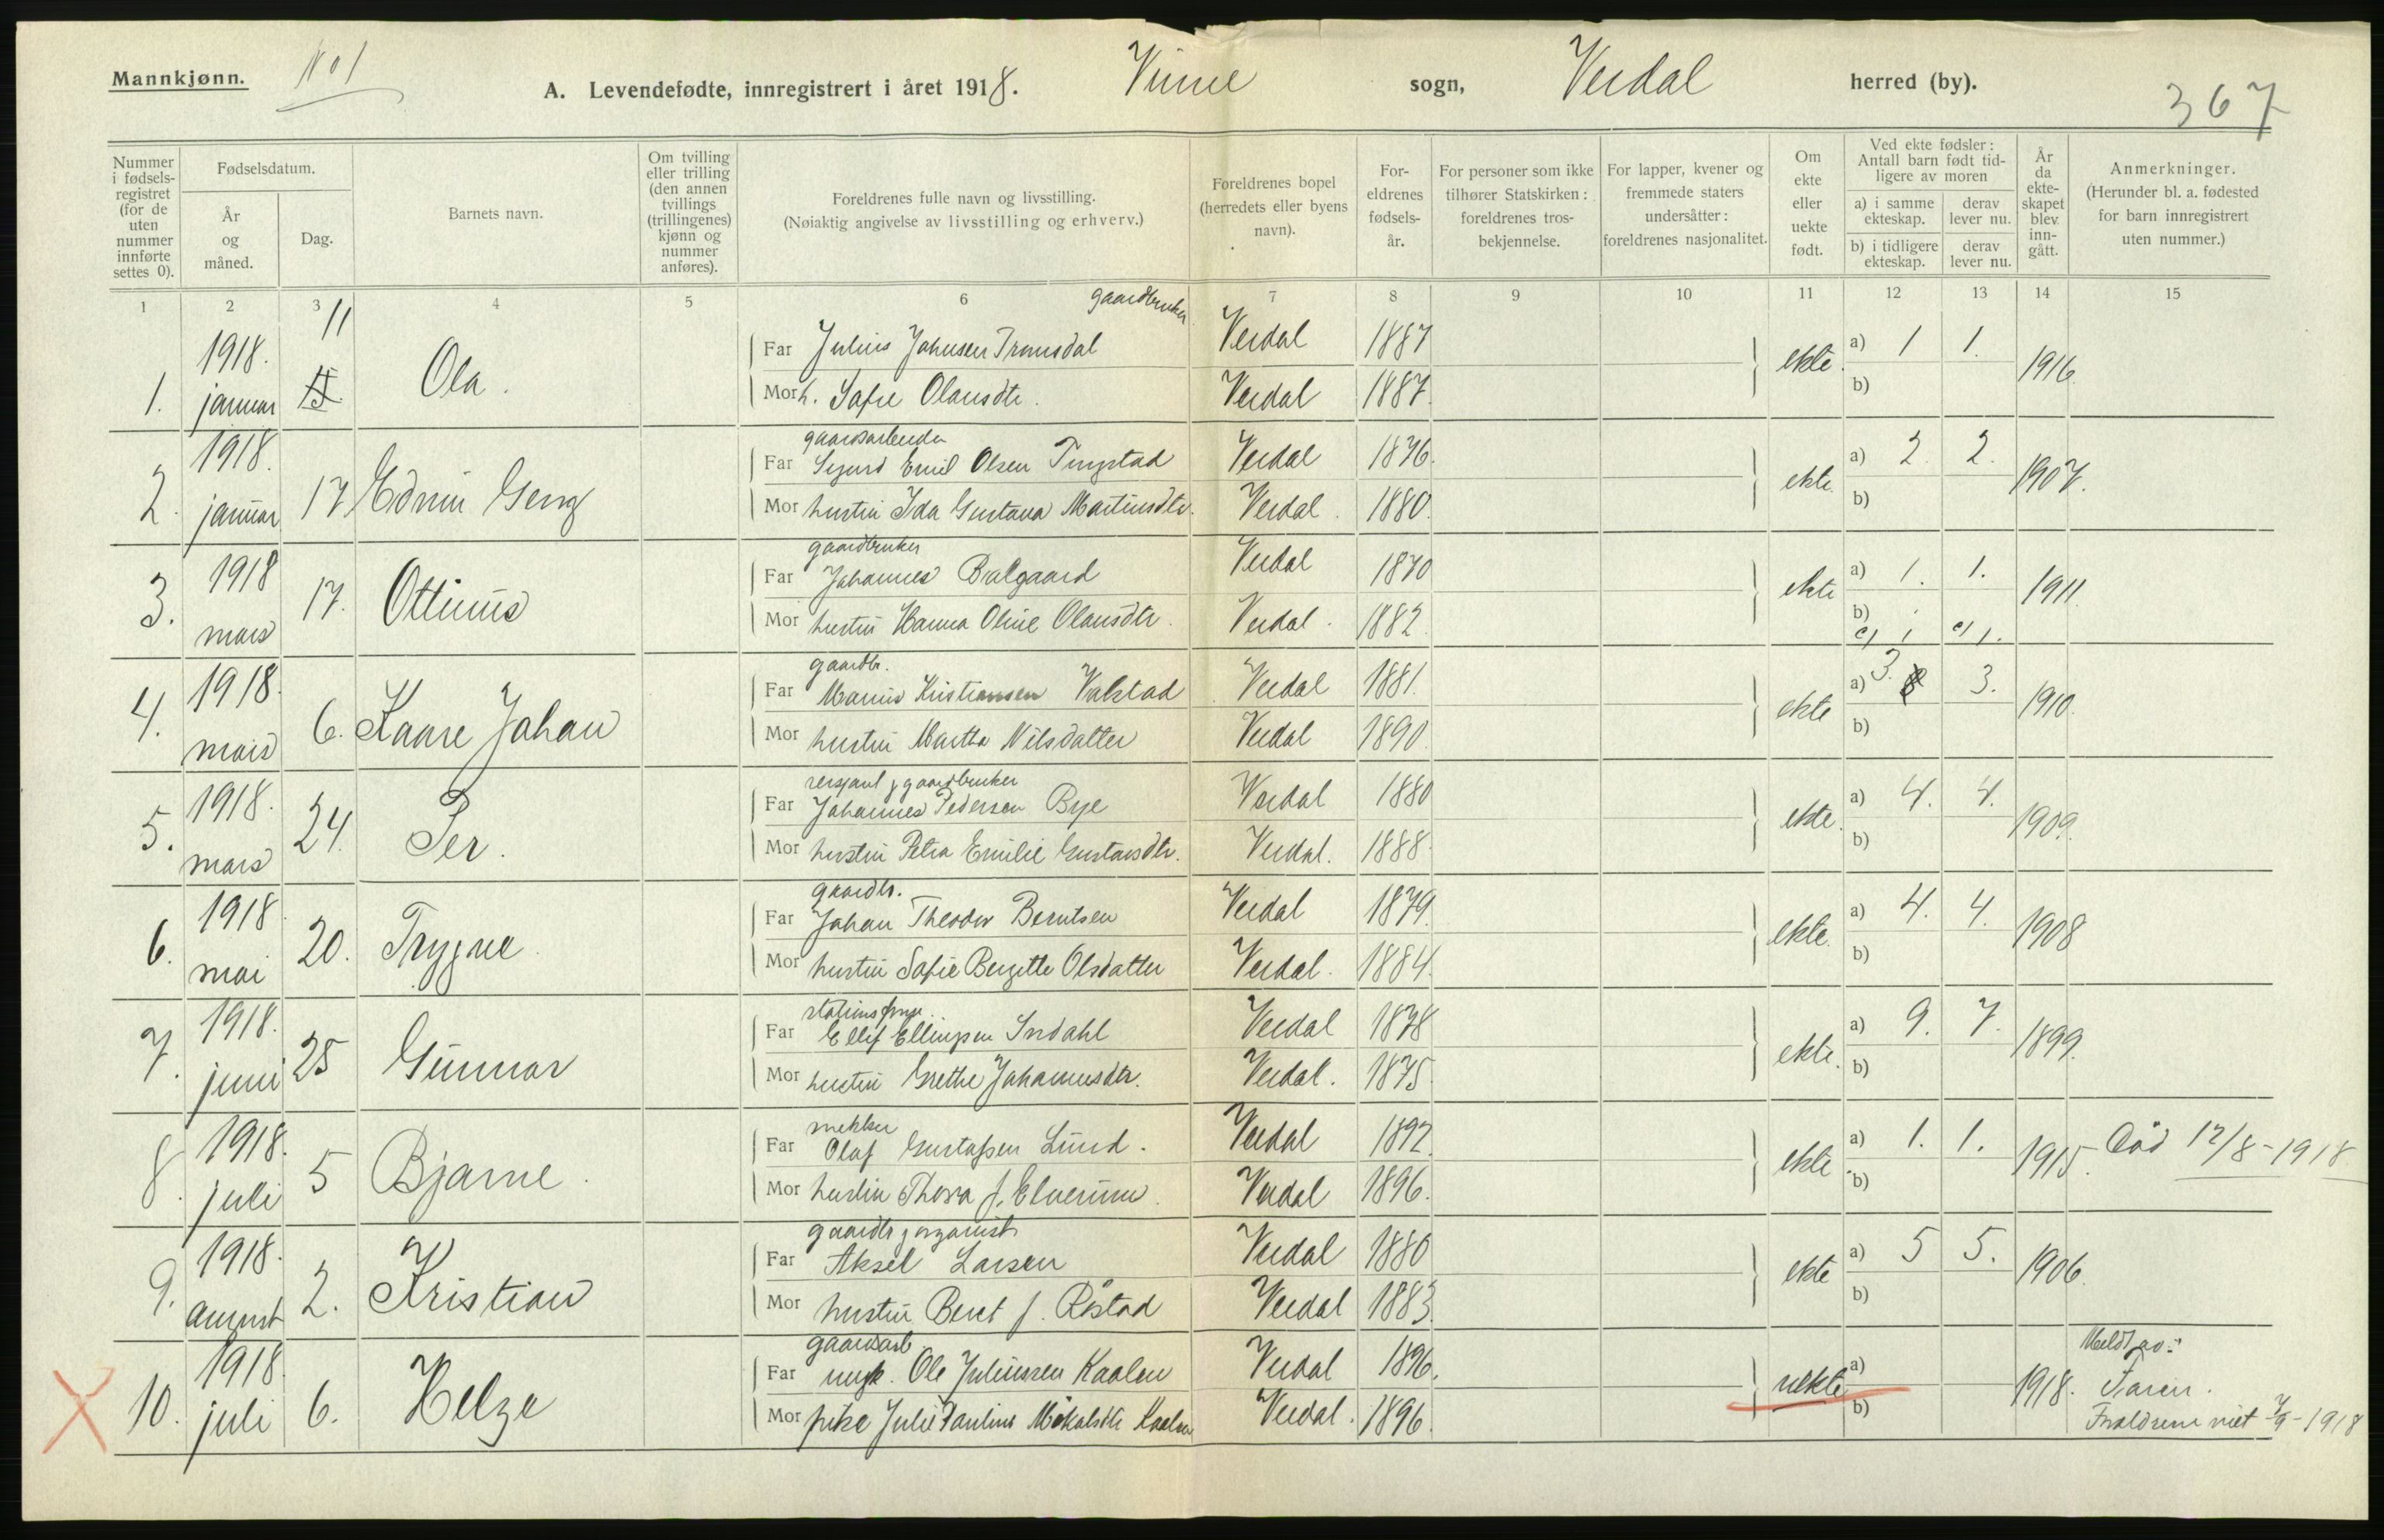 Mannkjønn.
No 1
A. Levendefødte, innregistrert i året 1918. Vinne sogn, Verdal herred (by).
367
Nummer i fødsels-registret (for de uten nummer innførte settes 0).
Fødselsdatum.
År og måned.
Dag.
Barnets navn.
Om tvilling eller trilling (den annen tvillings (trillingenes) kjønn og nummer anføres).
Foreldrenes fulle navn og livsstilling.
(Nøiaktig angivelse av livsstilling og erhverv.)
Foreldrenes bopel (herredets eller byens navn).
For-eldrenes fødsels-år.
For personer som ikke tilhører Statskirken: foreldrenes tros-bekjennelse.
For lapper, kvener og fremmede staters undersåtter: foreldrenes nasjonalitet.
Om ekte eller uekte født.
Ved ekte fødsler: Antall barn født tid-ligere av moren
a) i samme ekteskap.
derav lever nu.
b) i tidligere ekteskap.
derav lever nu.
År da ekte-skapet blev inn-gått.
Anmerkninger.
(Herunder bl. a. fødested for barn innregistrert uten nummer.)
1 2 3 4 5 6 7 8 9 10 11 12 13 14 15
gaardbruker
1. 1918. januar 11 Ola.
Far Julius Johnsen Tromsdal Verdal 1887
Mor h. Sofie Olausdtr. Verdal 1887.
ekte. a) 1 1. b) 1916.
gaardsarbeider
2. 1918. januar 17 Edvin Georg
Far Sigurd Emil Olsen Tingstad Verdal 1876.
Mor hustru Ida Gustava Martinsdtr. Verdal. 1880.
ekte. a) 2. 2. b) 1907.
gaardbruker
3. 1918 mars 17. Ottinus
Far Johannes Balgaard Verdal 1870
Mor hustru Hanna Oline Olausdtr. Verdal. 1882.
ekte a) 1. 1. b) c) 1 c) 1. 1911.
gaardbr.
4. 1918. mars 6. Kaare Johan
Far Marius Kristiansen Valstad Verdal 1881.
Mor hustru Martha Nilsdatter Verdal 1890.
ekte a) 3. 3. b) 1910.
sersjant j gaardbruker
5. 1918. mars 24. Per.
Far Johannes Pedersen Bye Verdal 1880
Mor hustru Petra Emilie Gustavsdtr. Verdal. 1888.
ekte. a) 4. 4. b) 1909.
gaardbr.
6. 1918 mai 20. Trygve.
Far Johan Theodor Berntsen Verdal 1879.
Mor hustru Sofie Bergitte Olsdatter Verdal. 1884.
ekte. a) 4. 4. b) 1908
7. 1918. juni 25 Gunnar
Far Ellif Ellingsen Indahl Verdal 1878
Mor hustru Grethe Johannesdtr. Verdal. 1875.
ekte. a) 9. 7. b) 1899.
snekker
8. 1918. juli 5 Bjarne.
Far Olaf Gustafsen Lund. Verdal 1892.
Mor hustru Thora f. Elverum. Verdal 1896.
ekte. a) 1. 1. b) 1915. Död 12/8-1918
gaardbr j organist
9. 1918. august 2. Kristian
Far Aksel Larsen Verdal 1880
Mor hustru Beret f. Røstad Verdal 1883.
ekte a) 5 5. b) 1906.
gaardsarb
10. 1918. juli 6. Helge
Far ungk. Ole Juliussen Kaalen Verdal 1896.
Mor pike Julie Pauline Mikalsdtr Kaalen Verdal. 1896.
uekte a) b) 1918. Meldt av: Faren.
Foreldrene viet 7/9-1918